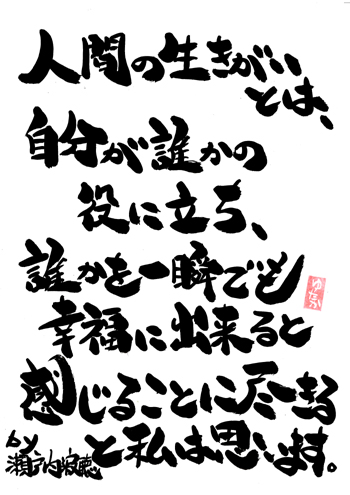 人間の生きがい
とは、
自分が誰かの
役に立ち、
誰かを一瞬でも
幸福に出来ると
感じることに尽きる
と私は思います。
by
瀬戸内寂聴
ゆたか